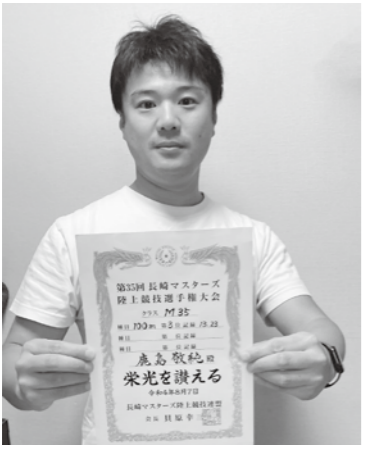 第35回 長崎マスターズ
陸上競技選手権大会
クラス M35
種目 100m 第3位 記録
種目 第 位 記録
種目 第 位 記録
鹿島 敬純 殿
栄光を讃える
令和6年8月7日
長崎マスターズ陸上競技連盟
会長 貝原 幸三